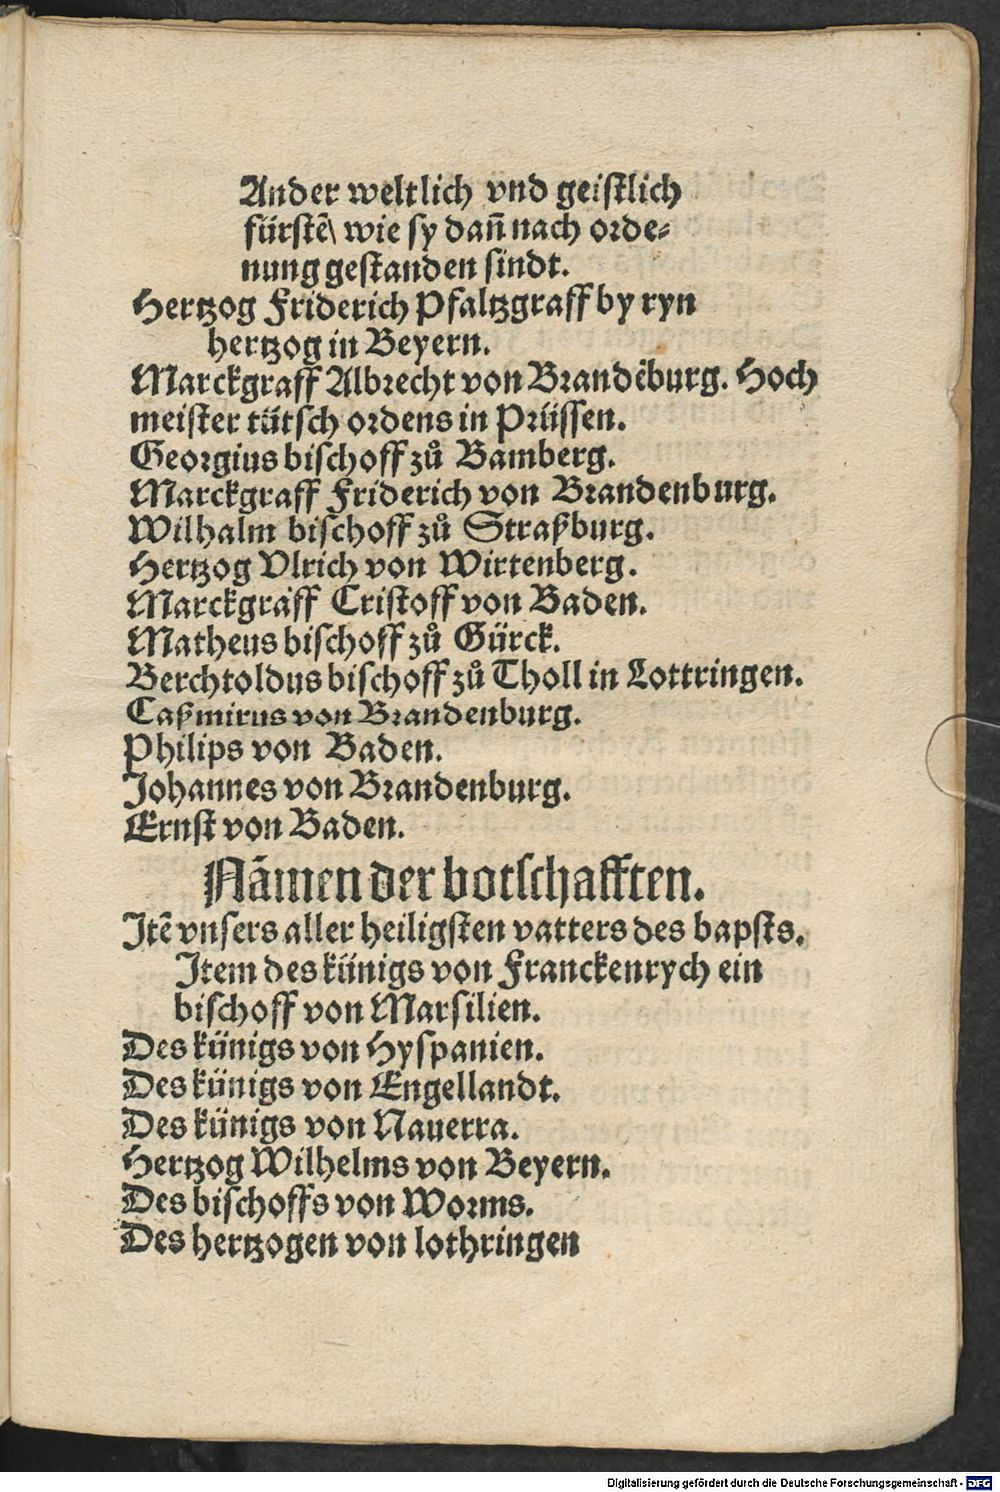 Ander weltlich vnd geistlich
fürstē\ wie sy dañ nach orde⸗
nung gestanden sindt.
Hertzog Friderich Pfaltzgraff by ryn
hertzog in Beyern.
Marckgraff Albrecht von Brandēburg. Hoch
meister tütsch ordens in Prüssen.
Georgius bischoff zů Bamberg.
Marckgraff Friderich von Brandenburg.
Wilhalm bischoff zů Straßburg.
Hertzog Vlrich von Wirtenberg.
Marckgraff Cristoff von Baden.
Matheus bischoff zů Gürck.
Berchtoldus bischoff zů Tholl in Lottringen.
Caßmirus von Brandenburg.
Philips von Baden.
Johannes von Brandenburg.
Ernst von Baden.
Nāmen der botschafften.
Itē vnsers aller heiligsten vatters des bapsts.
Item des künigs von Franckenrych ein
bischoff von Marsilien.
Des künigs von Hyspanien.
Des künigs von Engellandt.
Des künigs von Nauerra.
Hertzog Wilhelms von Beyern.
Des bischoffs von Worms.
Des hertzogen von lothringen
Digitalisierung gefördert durch die Deutsche Forschungsgemeinschaft - DFG